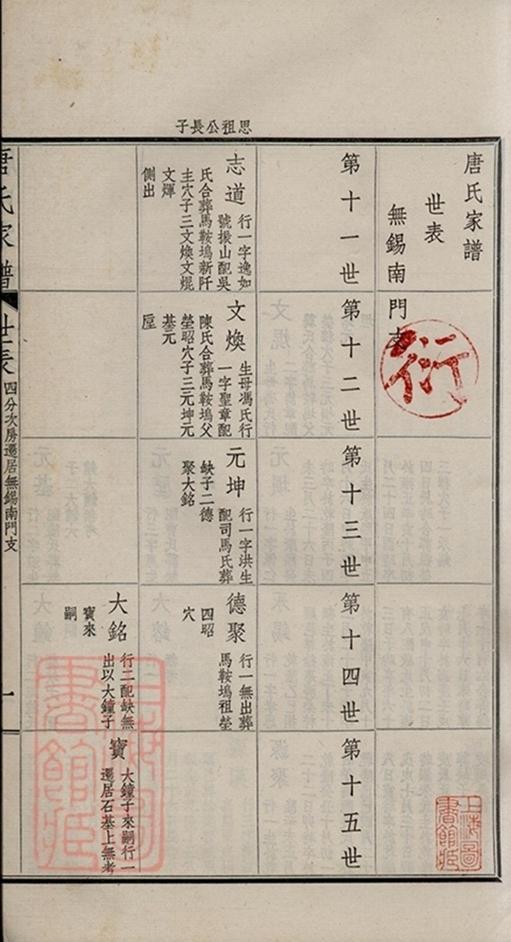 思祖公長子
唐氏家譜
世表
無錫南門支
衍
上海圖
書館藏
第十一世
志道
行一字逸如
號山配吳
氏合葬馬鞍塢新阡
主穴子三文煥文焜
文煇
側出
第十二世
文煥
生母馮氏行
一字聖章配
陳氏合葬馬鞍塢父
塋昭穴子三元坤元
基元
垕
第十三世
元坤
行一字洪生
配司馬氏葬
缺子二德
聚大銘
第十四世
德聚
行一無出葬
馬鞍塢祖塋
四昭
穴
大銘
行二配缺無
出以大鐘子
寶來
嗣
第十五世
寶
大鐘子來嗣行一
遷居石基上無考
上海圖
書館藏
唐氏家譜
世表
四分次房遷居無錫南門支
一